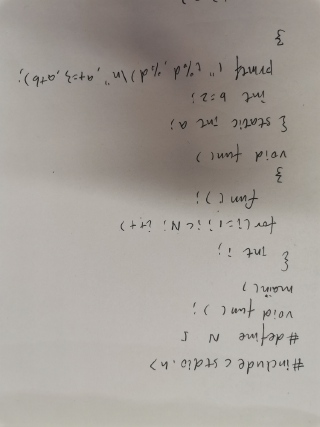 #include <stdio.h>
#define N 5
void func();
main()
{ int i;
for(i=1; i<N; i++)
func();
}
void func()
{ static int a;
int b=2;
printf ("(%d, %d)\n", a+=3, a+b);
}